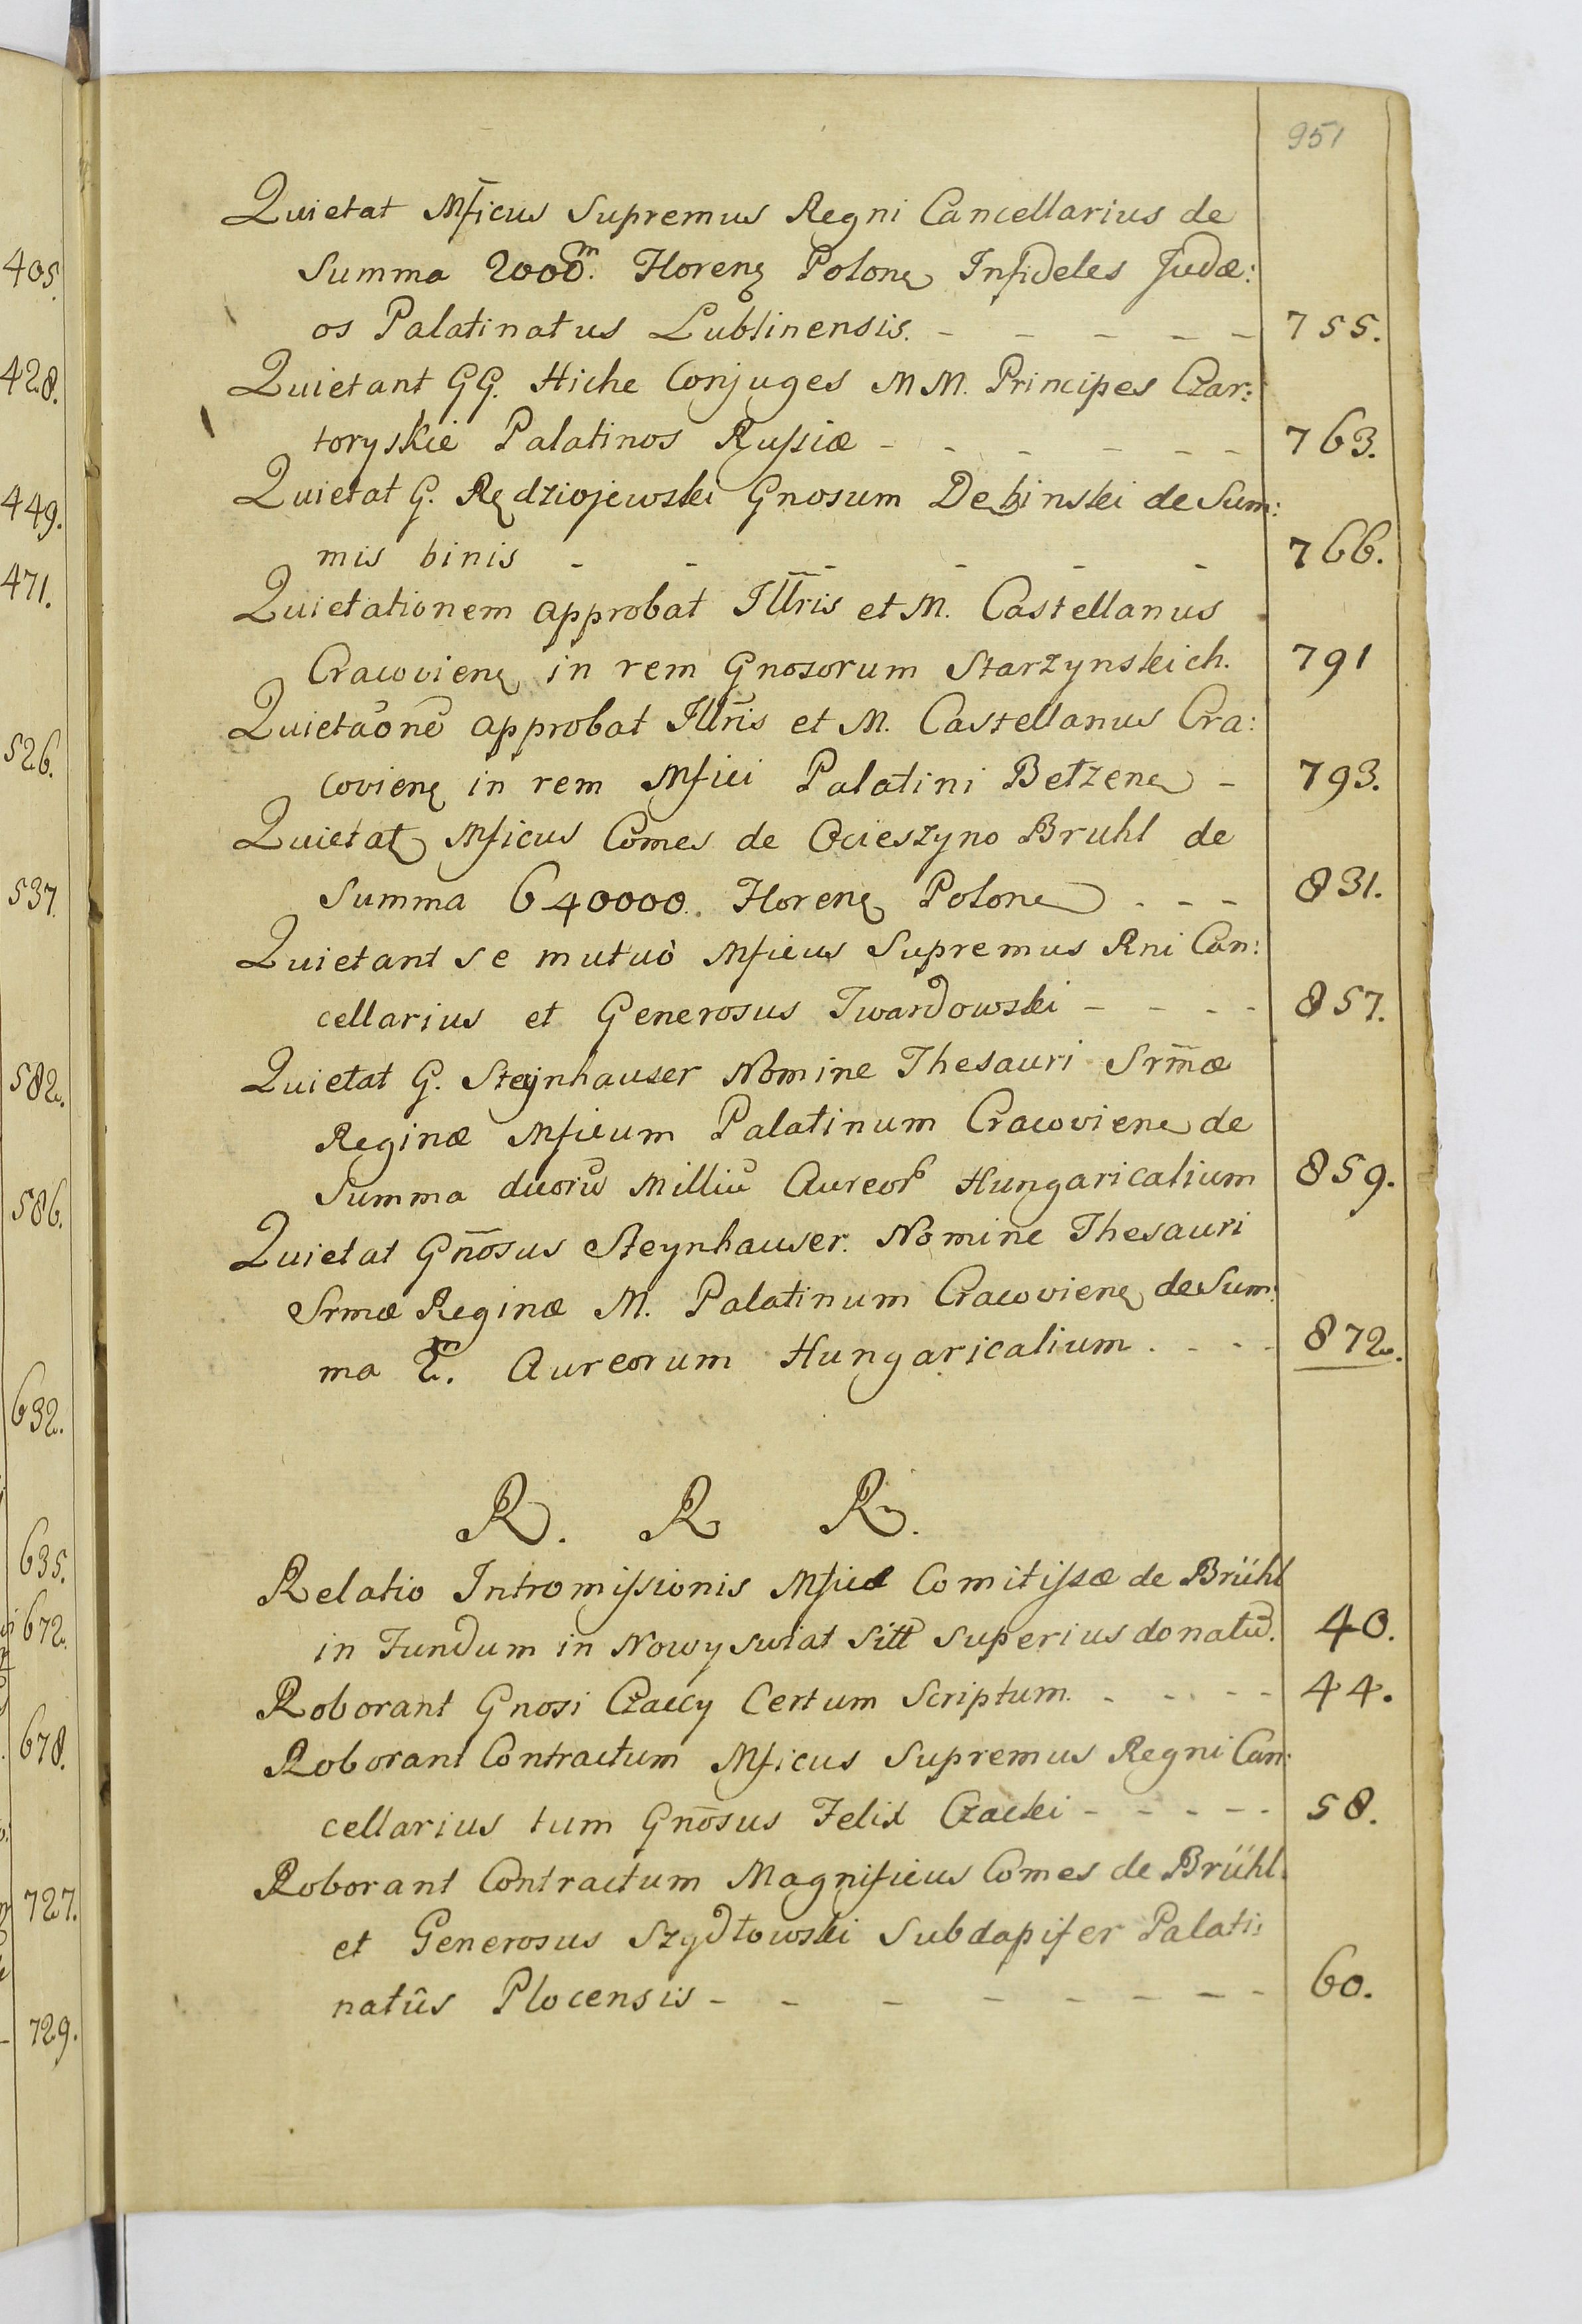 951
Quietat Mficus Supremus Regni Cancellarius de
Summa 2000.m Florenꝫ Polonꝫ Infideles Judæ:
os Palatinatus Lublinensis. - - - - - 755.
Quietant GG. Hiche Conjuges MM. Principes Czar:
toryskie Palatinos Russiæ - - - - - - 763.
Quietat G. Rędziojewski Gnosum Dębinski de Sum:
mis binis - - - - - - 766.
Quietationem approbat Illris et M. Castellanus
Cracovienꝫ in rem Gnosorum Starzynskich. 791
Quietaōnē approbat Illris et M. Castellanus Cra:
covienꝫ in rem Mfici Palatini Betzenꝫ - 793.
Quietat Mficus Comes de Ocieszyno Bruhl de
Summa 640000. Florenꝫ Polonꝫ - - - 831.
Quietant se mutuò Mficus Supremus Rni Can:
cellarius et Generosus Twardowski - - - - 857.
Quietat G. Steynhauser Nomine Thesauri Srm̄æ
Reginæ Mficum Palatinum Cracovienꝫ de
Summa duorū Milliū Aureor Hungaricalium 859.
Quietat Gnōsus Steynhauser. Nomine Thesauri
Srmæ Reginæ M. Palatinum Cracovienꝫ de Sum:
ma 2.m Aureorum Hungaricalium. - - - 872.
R. R R.
Relatio Intromissionis Mficæ Comitissæ de Brühl
in Fundum in Nowy swiat Sitt Superius donatū. 40.
Roborant Gnosi Czaccy Certum Scriptum. - - - - 44.
Roborant Contractum Mficus Supremus Regni Can:
cellarius tum Gnōsus Felix Czacki - - - - - 58.
Roborant Contractum Magnificus Comes de Brühl.
et Generosus Szydłowski Subdapifer Palati:
natûs Plocensis - - - - - - - - 60.
405.
428.
449.
471.
526.
537.
582.
586.
632.
635.
672.
678.
727.
729.